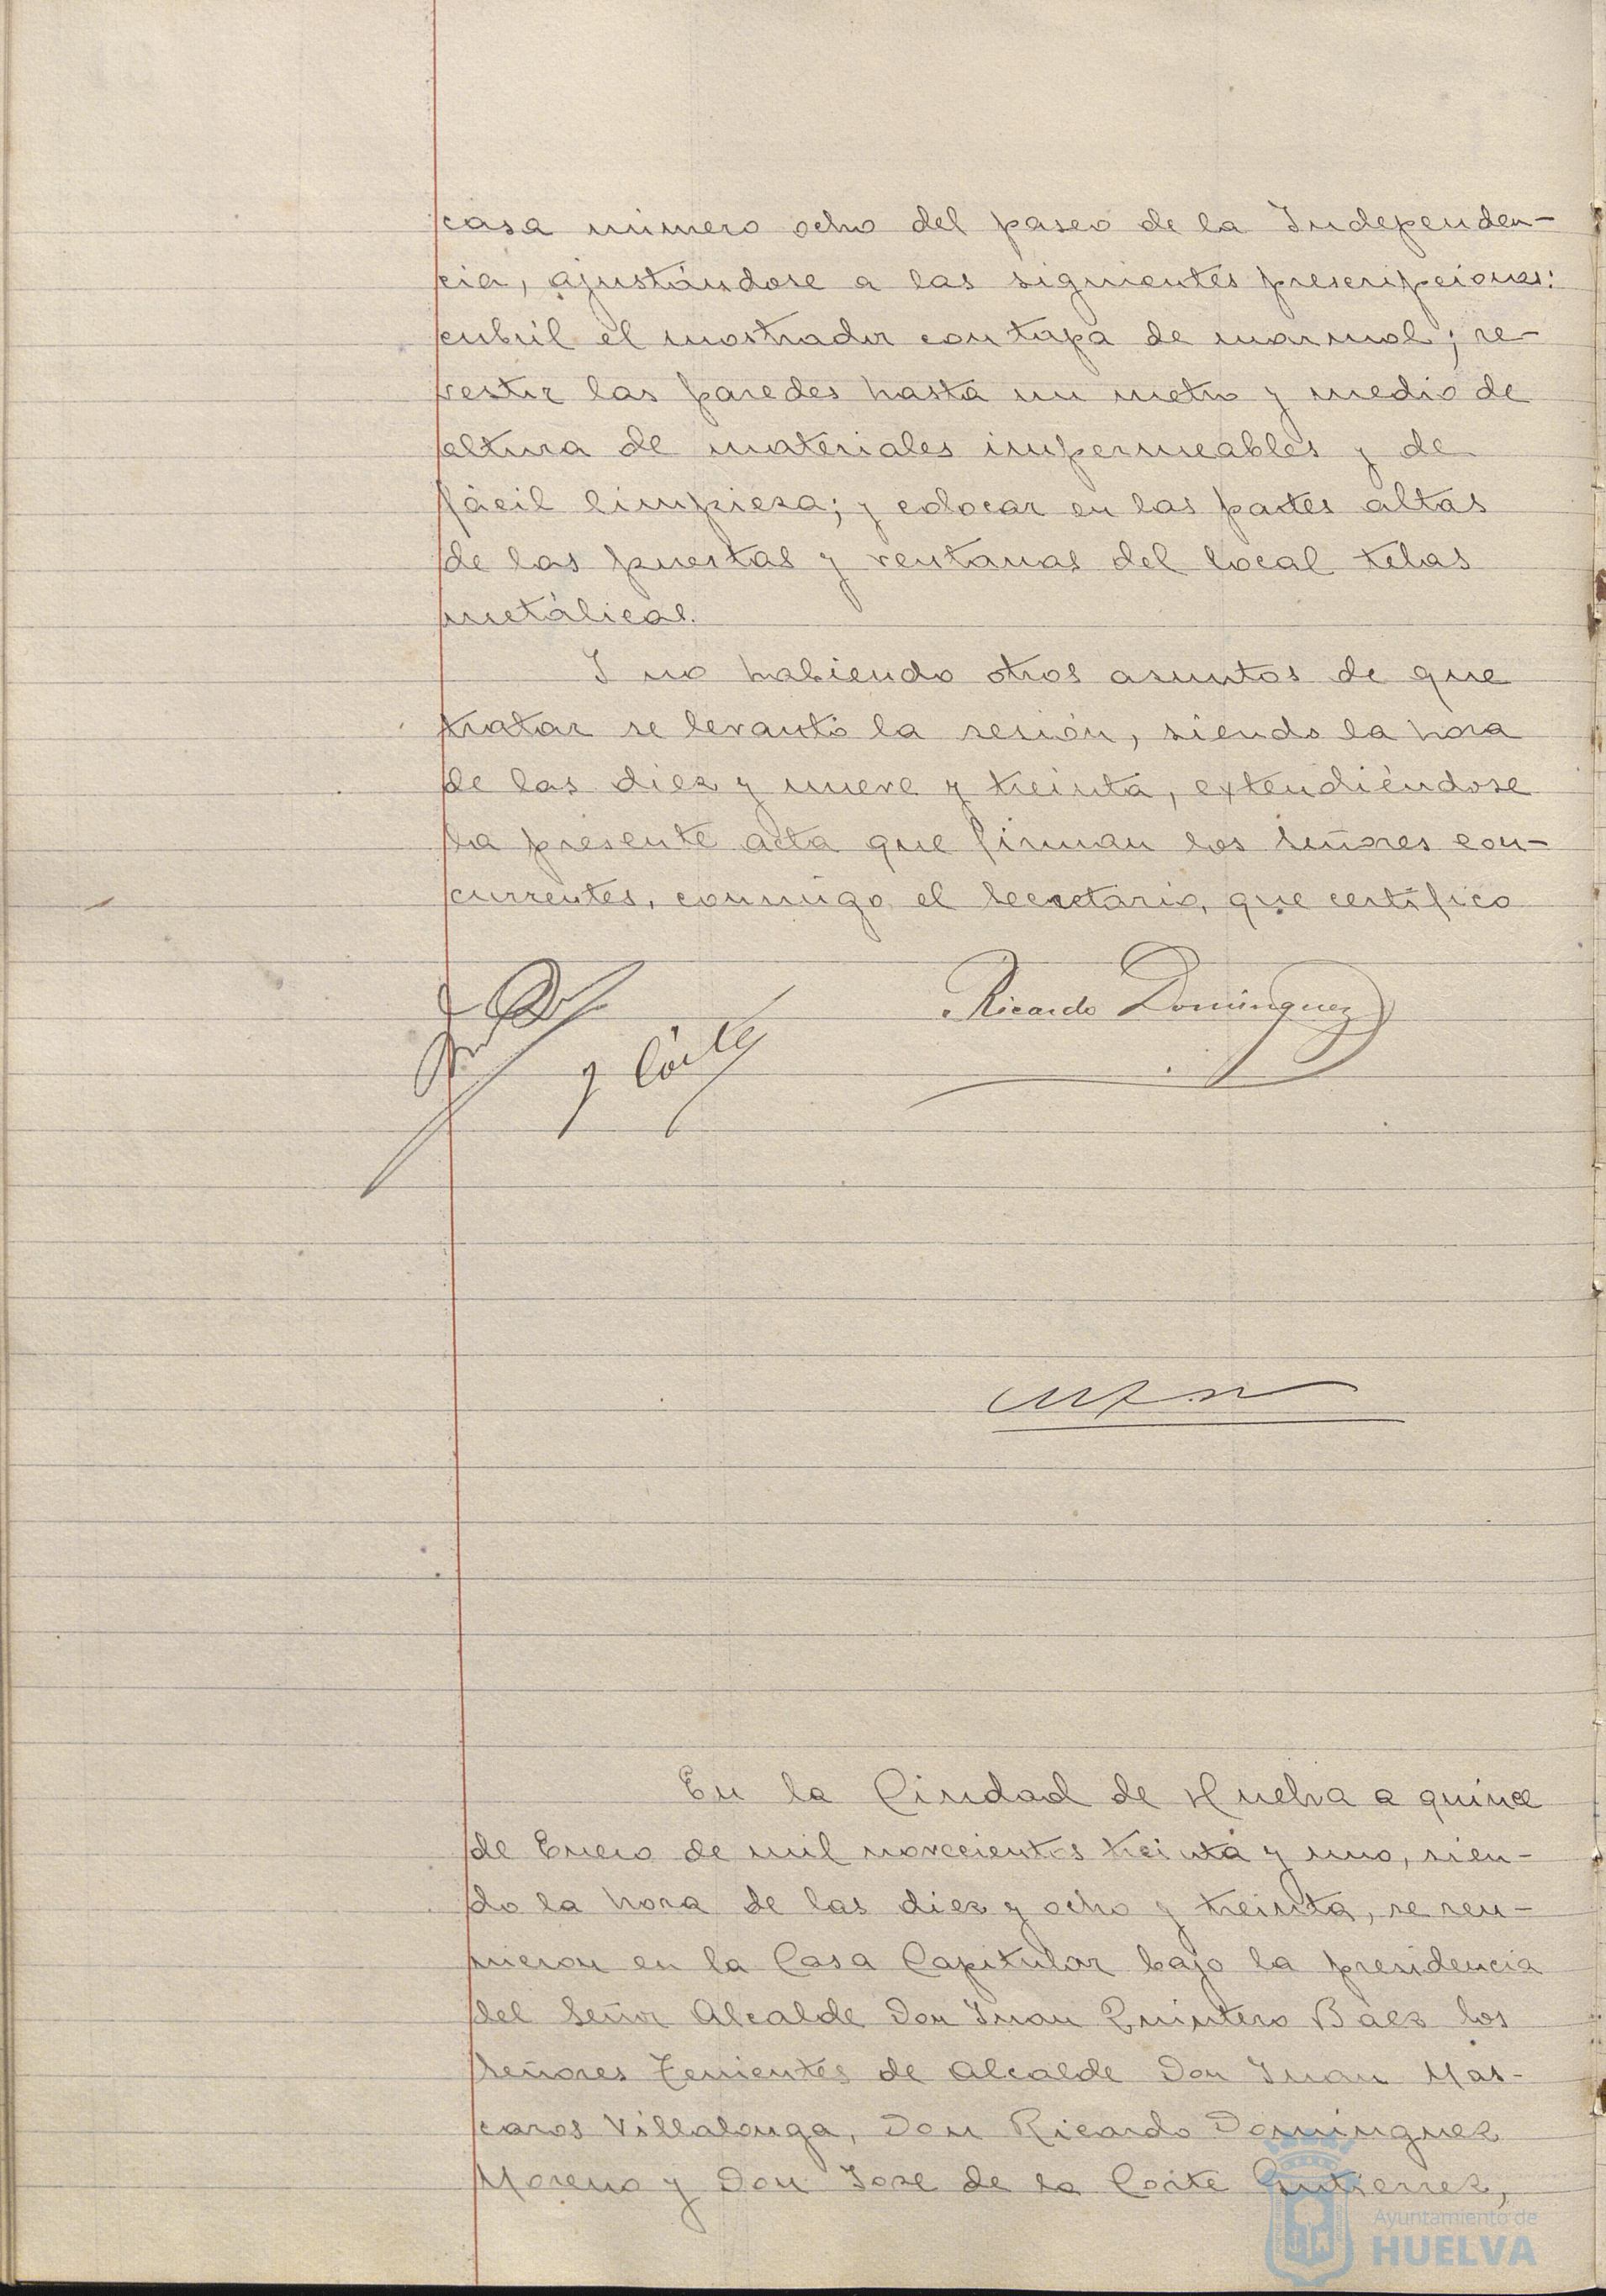 casa número ocho del paseo de la Independen-
cia, ajustándose a las siguientes prescripciones:
cubril el mostrador con tapa de marmol; re-
vestir las paredes hasta un metro y medio de
altura de materiales impermeables y de
fácil limpieza; y colocar en las partes altas
de las puertas y ventanas del local telas
metálicas.
Y no habiendo otros asuntos de que
tratar se levantó la sesión, siendo la hora
de las diez y nueve y treinta, extendiéndose
la presente acta que firman los señores con-
currentes, conmigo el Secretario, que certifico
Ricardo Dominguez
En la Ciudad de Huelva a quince
de Enero de mil novecientos treinta y uno, sien-
do la hora de las diez y ocho y treinta, se reu-
nieron en la Casa Capitular bajo la presidencia
del Señor Alcalde Don Juan Quintero Báez los
señores Tenientes de Alcalde Don Juan Mas-
caros Villalonga, Don Ricardo Domínguez
Moreno y Don Jose de la Corte Gutierrez,
Ayuntamiento de
HUELVA